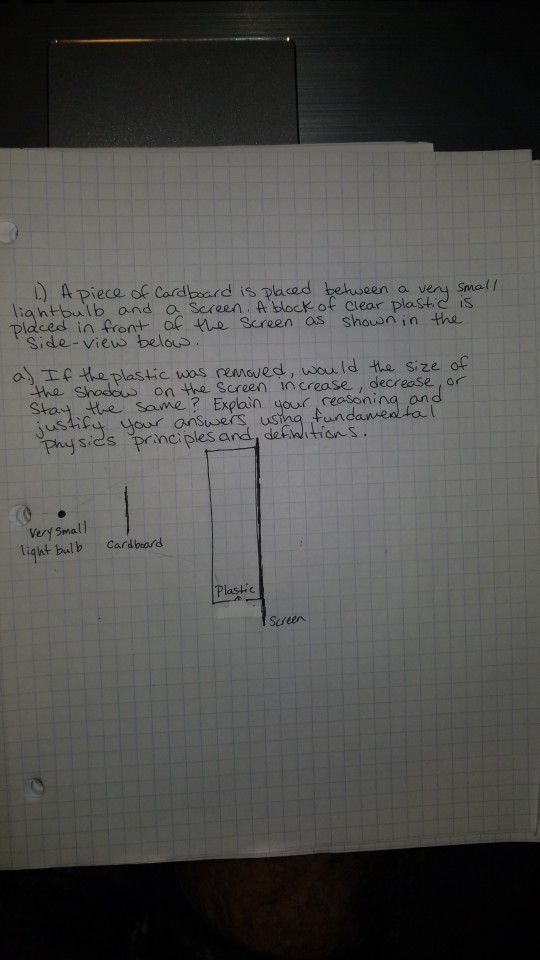 1.) A piece of Cardboard is placed between a very small
lightbulb and a Screen. A block of clear plastic is
placed in front of the Screen as shown in the
Side-view below.
a) If the plastic was removed, would the size of
the Shadow on the Screen increase, decrease, or
Stay the Same? Explain your reasoning and
justify your answers using fundamental
physics principles and definitions.
Very Small
light bulb
Cardboard
Plastic
Screen